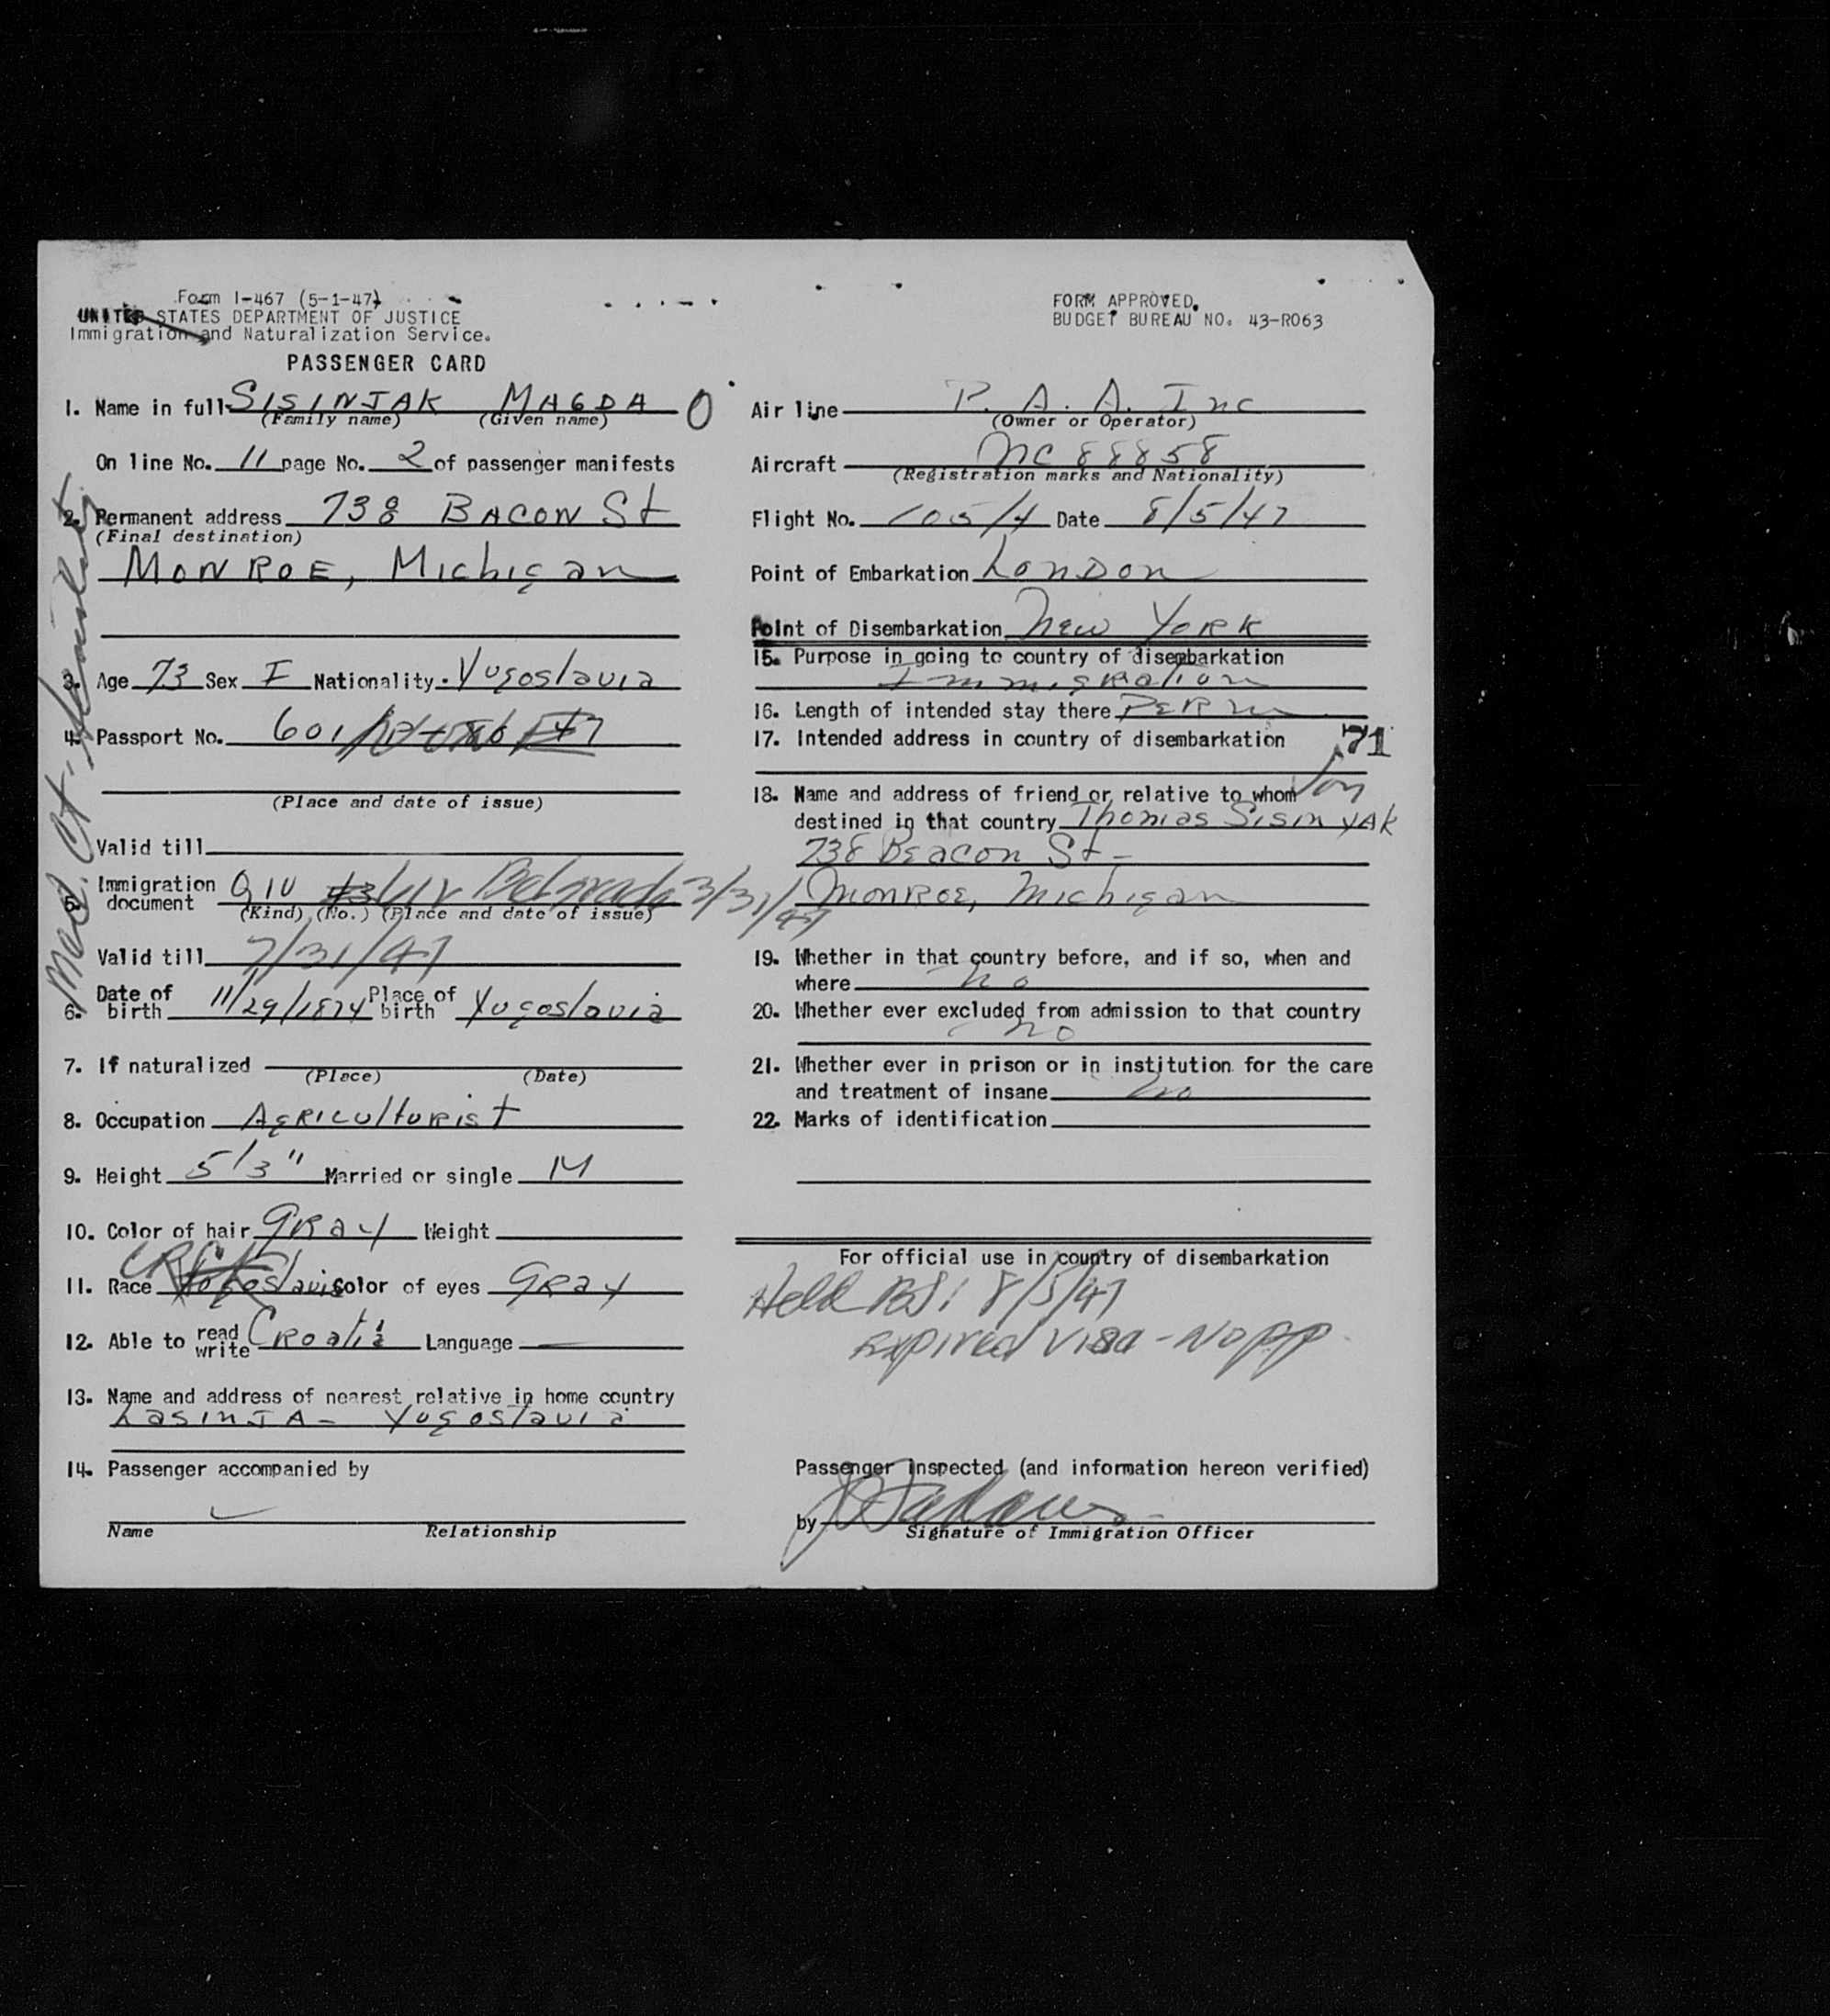 Form I-467 (5-1-47)
UNITED STATES DEPARTMENT OF JUSTICE
Immigration and Naturalization Service.
PASSENGER CARD
FORM APPROVED.
BUDGET BUREAU NO. 43-R063
1. Name in full SISINJAK MAGDA O
(Family name) (Given name)
On line No. 11 page No. 2 of passenger manifests
2. Permanent address 738 BACON St
(Final destination)
MONROE, Michigan
3. Age 73 Sex F Nationality Yugoslavia
4. Passport No. 601
(Place and date of issue)
Valid till
5. Immigration document QIV Belgrade 3/31/47
(Kind) (No.) (Place and date of issue)
Valid till 7/31/47
6. Date of birth 11/29/1874 Place of birth Yugoslavia
7. If naturalized
(Place) (Date)
8. Occupation AGRICUlturist
9. Height 5/3" Married or single M
10. Color of hair GRay Weight
11. Race Yugoslavia Color of eyes GRay
12. Able to read write Croatia Language —
13. Name and address of nearest relative in home country
LASINJA - Yugoslavia
14. Passenger accompanied by
Name Relationship
Med. Ct.
Air line P. A. A. Inc
(Owner or Operator)
Aircraft NC 88858
(Registration marks and Nationality)
Flight No. 105/4 Date 8/5/47
Point of Embarkation LonDon
Point of Disembarkation New YORK
15. Purpose in going to country of disembarkation
Immigration
16. Length of intended stay there PERM
17. Intended address in country of disembarkation 71
18. Name and address of friend or relative to whom Son
destined in that country Thomas SisinyAk
738 Beacon St -
Monroe, Michigan
19. Whether in that country before, and if so, when and
where no
20. Whether ever excluded from admission to that country
no
21. Whether ever in prison or in institution for the care
and treatment of insane no
22. Marks of identification
For official use in country of disembarkation
Held BSI 8/5/47
Expired visa - No pp
Passenger inspected (and information hereon verified)
by
Signature of Immigration Officer